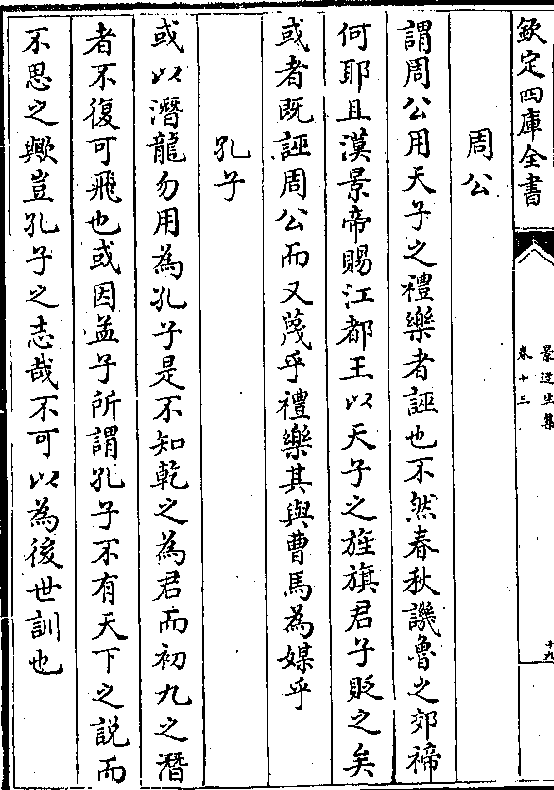 欽定四庫全書
景迂生集
卷十三
十九
周公
謂周公用天子之禮樂者誣也不然春秋譏魯之郊禘
何耶且漢景帝賜江都王以天子之旌旗君子貶之矣
或者既誣周公而又蔑乎禮樂其與曹馬為媒乎
孔子
或以潛龍勿用為孔子是不知乾之為君而初九之潛
者不復可飛也或因孟子所謂孔子不有天下之説而
不思之歟豈孔子之志哉不可以為後世訓也